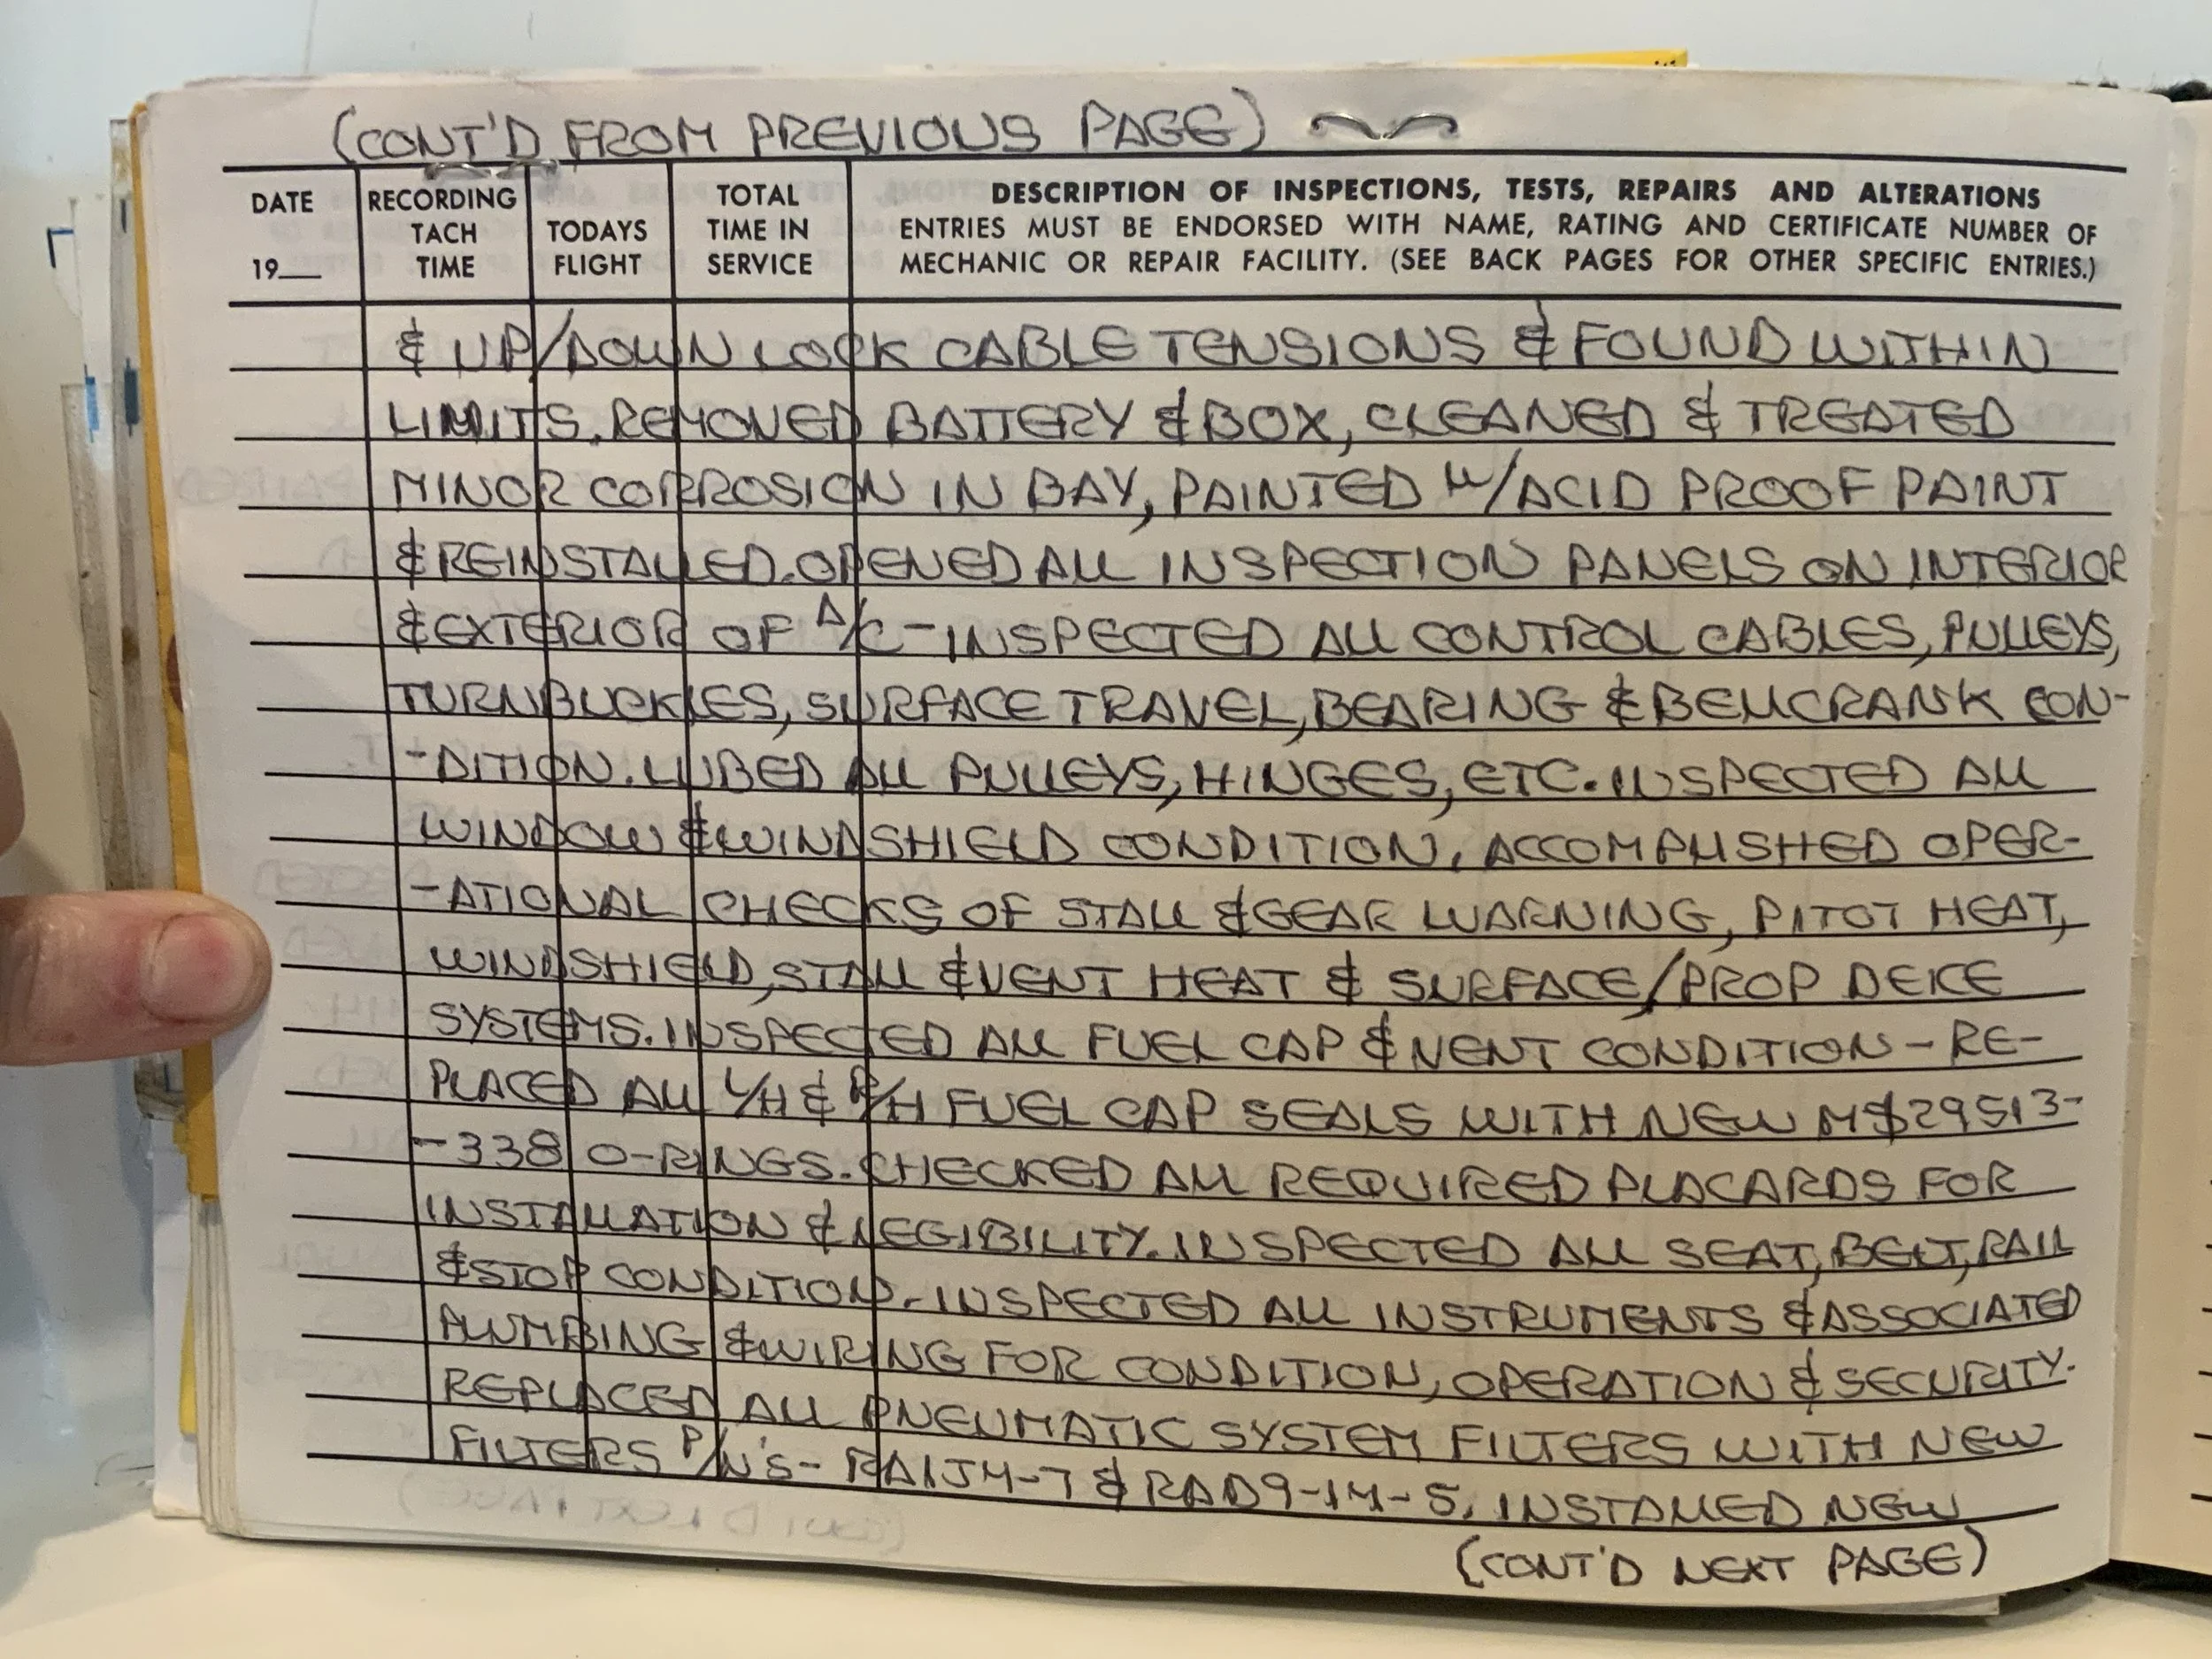 (CONT'D FROM PREVIOUS PAGE)
DATE
19__
RECORDING
TACH
TIME
TODAYS
FLIGHT
TOTAL
TIME IN
SERVICE
DESCRIPTION OF INSPECTIONS, TESTS, REPAIRS AND ALTERATIONS
ENTRIES MUST BE ENDORSED WITH NAME, RATING AND CERTIFICATE NUMBER OF
MECHANIC OR REPAIR FACILITY. (SEE BACK PAGES FOR OTHER SPECIFIC ENTRIES.)
& UP/DOWN LOCK CABLE TENSIONS & FOUND WITHIN
LIMITS. REMOVED BATTERY & BOX, CLEANED & TREATED
MINOR CORROSION IN BAY, PAINTED W/ACID PROOF PAINT
& REINSTALLED. OPENED ALL INSPECTION PANELS ON INTERIOR
& EXTERIOR OF A/C - INSPECTED ALL CONTROL CABLES, PULLEYS,
TURNBUCKLES, SURFACE TRAVEL, BEARING & BELLCRANK CON-
-DITION. LUBED ALL PULLEYS, HINGES, ETC. INSPECTED ALL
WINDOW & WINDSHIELD CONDITION. ACCOMPLISHED OPER-
-ATIONAL CHECKS OF STALL & GEAR WARNING, PITOT HEAT,
WINDSHIELD, STALL & VENT HEAT & SURFACE/PROP DEICE
SYSTEMS. INSPECTED ALL FUEL CAP & VENT CONDITION - RE-
PLACED ALL L/H & R/H FUEL CAP SEALS WITH NEW MS29513-
-338 O-RINGS. CHECKED ALL REQUIRED PLACARDS FOR
INSTALLATION & LEGIBILITY. INSPECTED ALL SEAT, BELT, RAIL
& STOP CONDITION. INSPECTED ALL INSTRUMENTS & ASSOCIATED
PLUMBING & WIRING FOR CONDITION, OPERATION & SECURITY.
REPLACED ALL PNEUMATIC SYSTEM FILTERS WITH NEW
FILTERS P/N'S - RA1J4-7 & RAD9-14-5. INSTALLED NEW
(CONT'D NEXT PAGE)